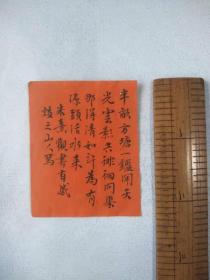 半畝方塘一鑑開天
光雲影共徘徊問渠
那得清如許為有
源頭活水來
朱熹觀書有感
三山人寫